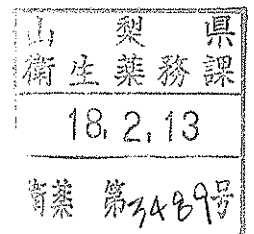 山梨県
衛生薬務課
18.2.13
衛薬 第3489号